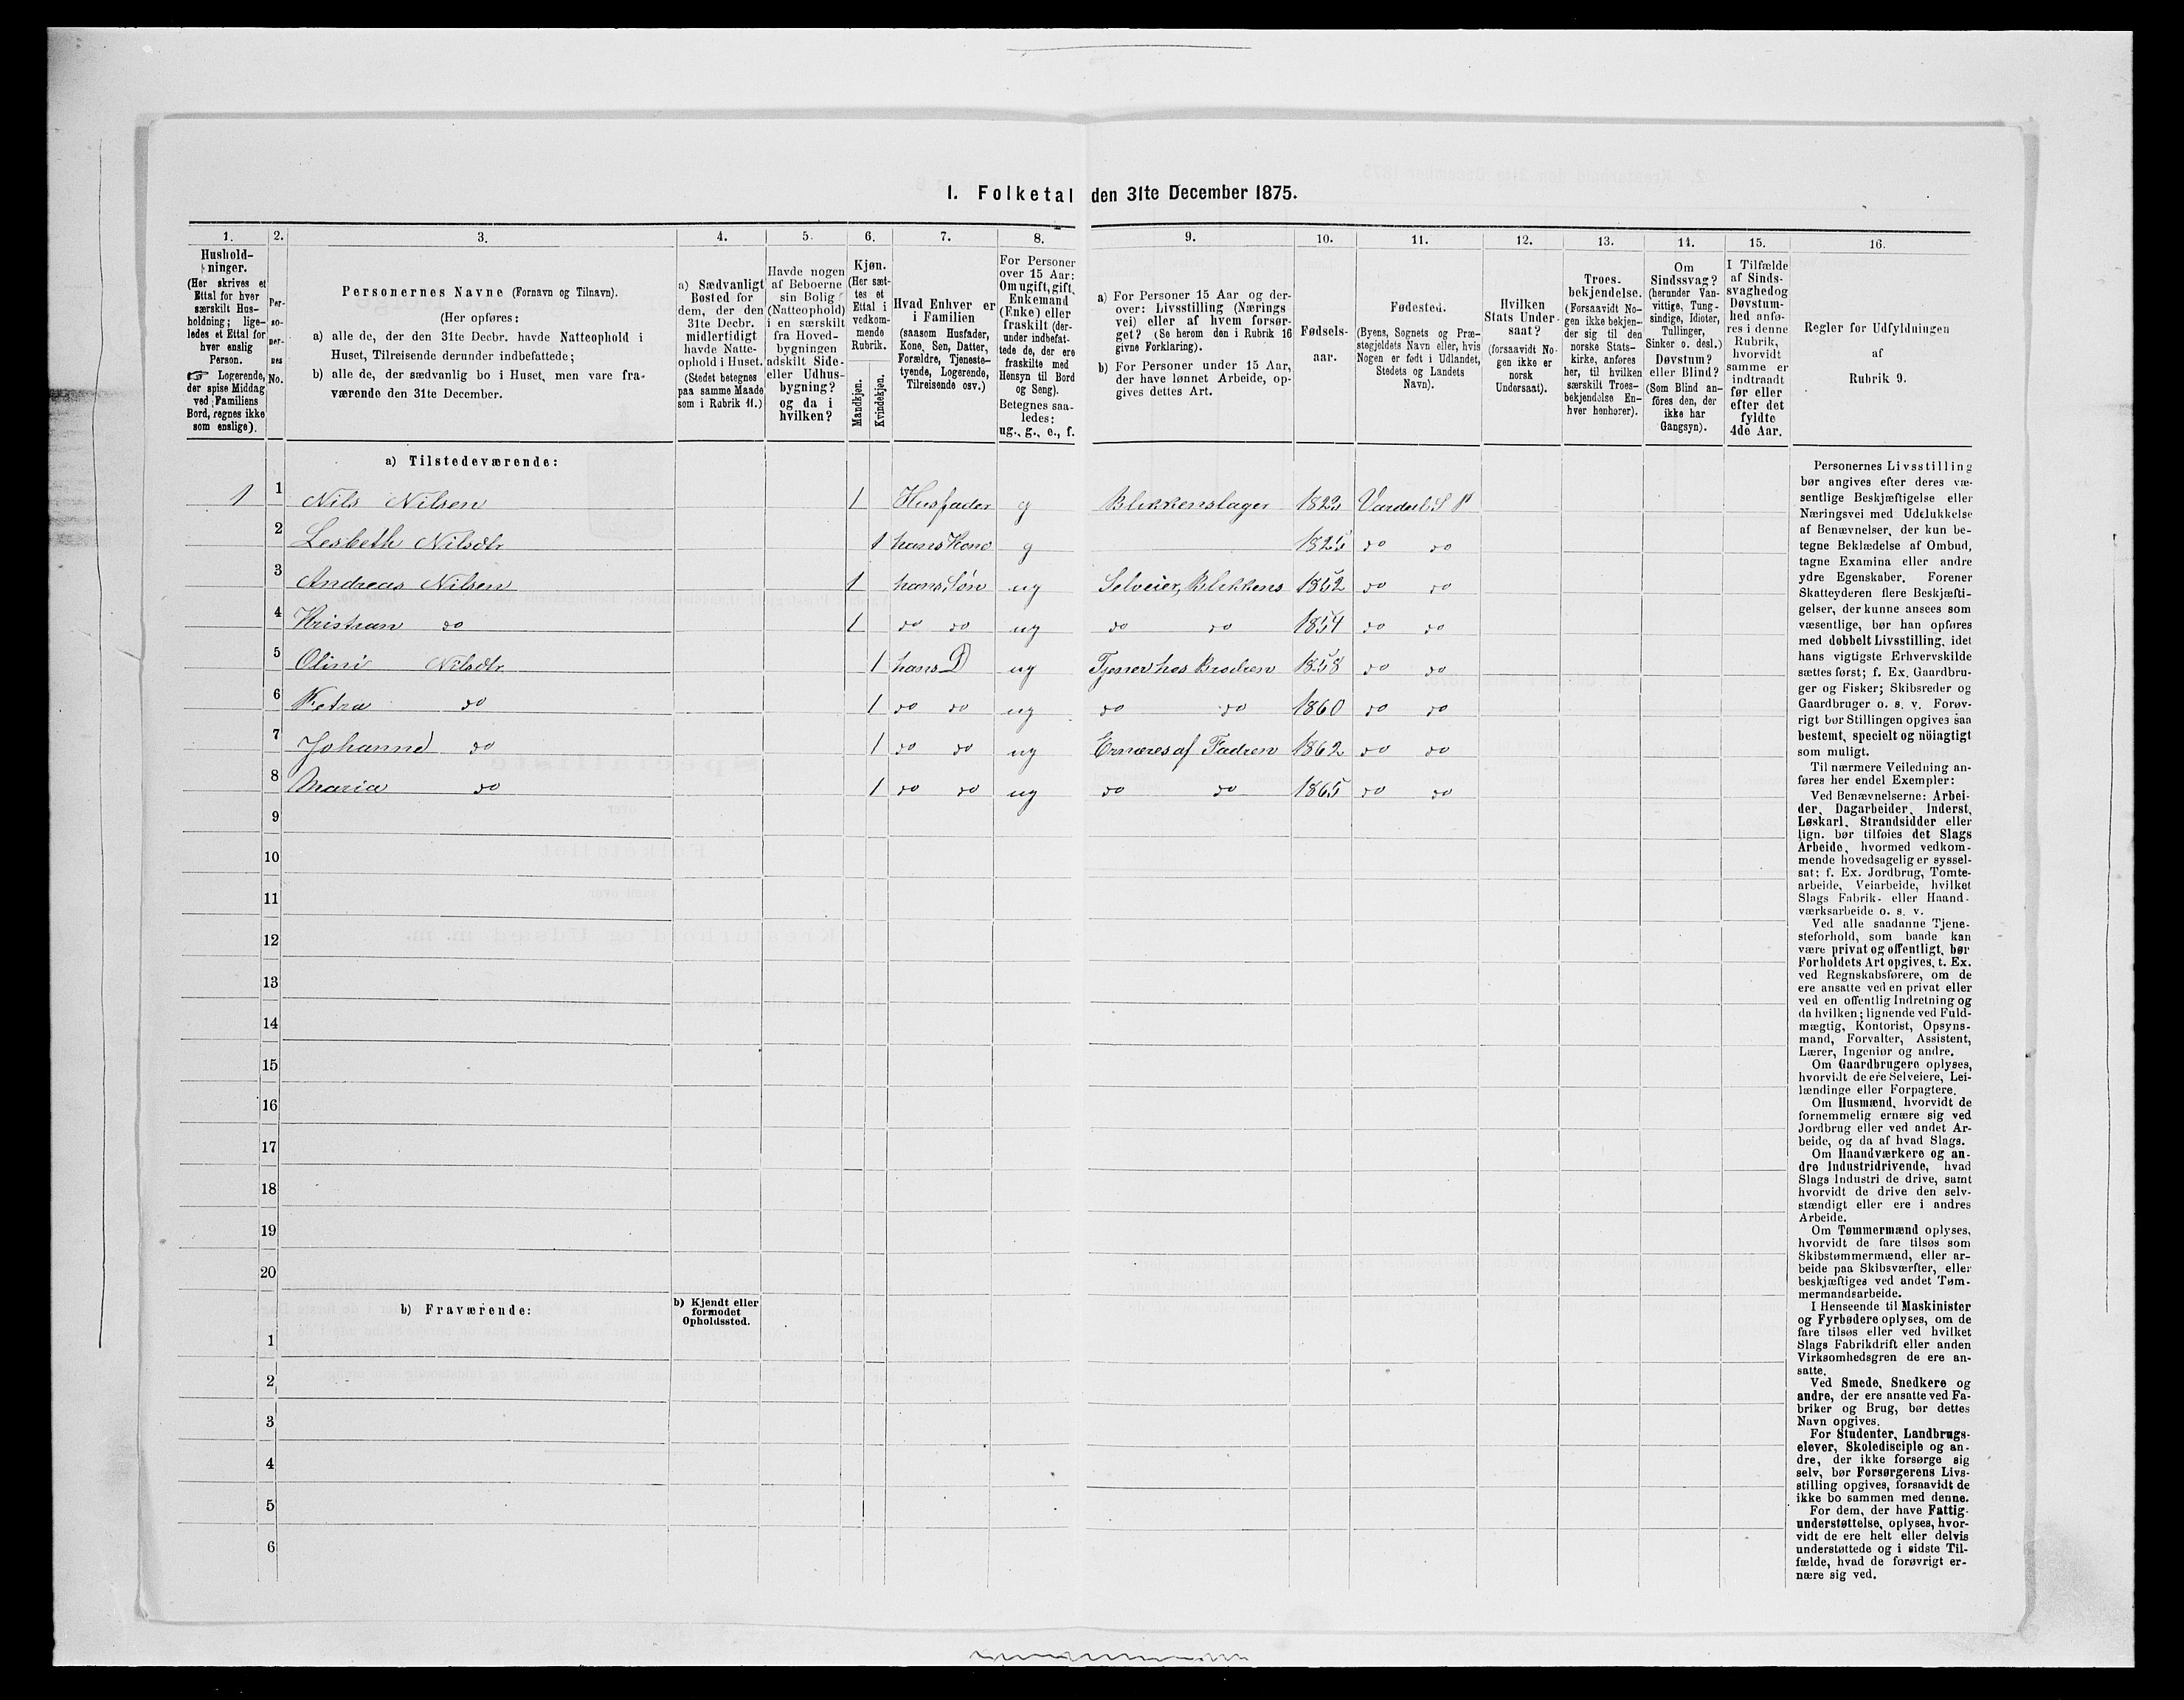 1. Folketal den 31te December 1875.
1. 2. 3. 4. 5. 6. 7. 8. 9. 10. 11. 12. 13. 14. 15. 16.
Hushold-
ninger.
(Her skrives et
Ettal for hver
særskilt Hus-
holdning; lige-
ledes et Ettal for
hver enslig
Person.
☞ Logerende,
der spise Middag
ved Familiens
Bord, regnes ikke
som enslige).
Per-
so-
ner-
nes
No.
Personernes Navne (Fornavn og Tilnavn).
(Her opføres:
a) alle de, der den 31te Decbr. havde Natteophold i
Huset, Tilreisende derunder indbefattede;
b) alle de, der sædvanlig bo i Huset, men vare fra-
værende den 31te December.
a) Sædvanligt
Bosted for
dem, der den
31te Decbr.
midlertidigt
havde Natte-
ophold i Huset.
(Stedet betegnes
paa samme Maade
som i Rubrik 11.)
Havde nogen
af Beboerne
sin Bolig
(Natteophold)
i en særskilt
fra Hoved-
bygningen
adskilt Side-
eller Udhus-
bygning?
og da i
hvilken?
Kjøn.
(Her sæt-
tes et
Ettal i
vedkom-
mende
Rubrik.
Mandkjøn.
Kvindekjøn.
Hvad Enhver er
i Familien
(saasom Husfader,
Kone, Søn, Datter,
Forældre, Tjeneste-
tyende, Logerende,
Tilreisende osv.)
For Personer
over 15 Aar:
Om ugift, gift,
Enkemand
(Enke) eller
fraskilt (der-
under indbefat-
tede de, der ere
fraskilte med
Hensyn til Bord
og Seng).
Betegnes saa-
ledes:
ug., g., e., f.
a) For Personer 15 Aar og der-
over: Livsstilling (Nærings
vei) eller af hvem forsør-
get? (Se herom den i Rubrik 16
givne Forklaring).
b) For Personer under 15 Aar,
der have lønnet Arbeide, op-
gives dettes Art.
Fødsels-
aar.
Fødested.
(Byens, Sognets og Præ-
stegjeldets Navn eller, hvis
Nogen er født i Udlandet,
Stedets og Landets
Navn).
Hvilken
Stats Under-
saat?
(forsaavidt No-
gen ikke er
norsk
Undersaat).
Troes-
bekjendelse.
(Forsaavidt No-
gen ikke bekjen-
der sig til den
norske Stats-
kirke, anføres
her, til hvilken
særskilt Troes-
bekjendelse En-
hver henhører).
Om
Sindssvag?
(herunder Van-
vittige, Tung-
sindige, Idioter,
Tullinger,
Sinker o. desl.)
Døvstum?
eller Blind?
(Som Blind an-
føres den, der
ikke har
Gangsyn).
I Tilfælde
af Sinds-
svaghed og
Døvstum-
hed anfø-
res i denne
Rubrik,
hvorvidt
samme er
indtraadt
før eller
efter det
fyldte
4de Aar.
Regler for Udfyldningen
af
Rubrik 9.
a) Tilstedeværende:
1 1 Nils Nilsen 1 Husfader g Blikkenslager 1823 Vardal S P
2 Lesbeth Nilsdtr 1 hans Kone g 1825 do do
3 Andreas Nilsen 1 hans Søn ug Selveier, Blikkens 1852 do do
4 Kristian do 1 do do ug do do 1854 do do
5 Olini Nilsdtr 1 hans D ug Tjener hos Brodren 1858 do do
6 Petra do 1 do do ug do do 1860 do do
7 Johanne do 1 do do ug Ernæres af Fadren 1862 do do
8 Maria do 1 do do ug do do 1865 do do
9
10
11
12
13
14
15
16
17
18
19
20
b) Fraværende:
b) Kjendt eller
formodet
Opholdssted.
1
2
3
4
5
6
Personernes Livsstilling
bør angives efter deres væ-
sentlige Beskjæftigelse eller
Næringsvei med Udelukkelse
af Benævnelser, der kun be-
tegne Beklædelse af Ombud,
tagne Examina eller andre
ydre Egenskaber. Forener
Skatteyderen flere Beskjæfti-
gelser, der kunne ansees som
væsentlige, bør han opføres
med dobbelt Livsstilling, idet
hans vigtigste Erhvervskilde
sættes først; f. Ex. Gaardbru-
ger og Fisker; Skibsreder og
Gaardbruger o. s. v. Forøv-
rigt bør Stillingen opgives saa
bestemt, specielt og nöiagtigt
som muligt.
Til nærmere Veiledning an-
føres her endel Exempler:
Ved Benævnelserne: Arbei-
der, Dagarbeider, Inderst,
Løskarl, Strandsidder eller
lign. bør tilføies det Slags
Arbeide, hvormed vedkom-
mende hovedsagelig er syssel-
sat; f. Ex. Jordbrug, Tomte-
arbeide, Veiarbeide, hvilket
Slags Fabrik- eller Haand-
værksarbeide o. s. v.
Ved alle saadanne Tjene-
steforhold, som baade kan
være privat og offentligt, bør
Forholdets Art opgives, t. Ex.
ved Regnskabsførere, om de
ere ansatte ved en privat eller
ved en offentlig Indretning og
da hvilken; lignende ved Fuld-
mægtig, Kontorist, Opsyns-
mand, Forvalter, Assistent,
Lærer, Ingeniør og andre.
Om Gaardbrugere oplyses,
hvorvidt de ere Selveiere, Lei-
lændinge eller Forpagtere.
Om Husmænd, hvorvidt de
fornemmelig ernære sig ved
Jordbrug eller ved andet Ar-
beide, og da af hvad Slags.
Om Haandværkere og an-
dre Industridrivende, hvad
Slags Industri de drive, samt
hvorvidt de drive den selv-
stændigt eller ere i andres
Arbeide.
Om Tømmermænd oplyses,
hvorvidt de fare tilsøs som
Skibstømmermænd, eller ar-
beide paa Skibsværfter, eller
beskjæftiges ved andet Tøm-
mermandsarbeide.
I Henseende til Maskinister
og Fyrbødere oplyses, om de
fare tilsøs eller ved hvilket
Slags Fabrikdrift eller anden
Virksomhedsgren de ere an-
satte.
Ved Smede, Snedkere og
andre, der ere ansatte ved Fa-
briker og Brug, bør dettes
Navn opgives.
For Studenter, Landbrugs-
elever, Skoledisciple og an-
dre, der ikke forsørge sig
selv, bør Forsørgerens Livs-
stilling opgives, forsaavidt de
ikke bo sammen med denne.
For dem, der have Fattig-
understøttelse, oplyses, hvor-
vidt de ere helt eller delvis
understøttede og i sidste Til-
fælde, hvad de forøvrigt er-
nære sig ved.